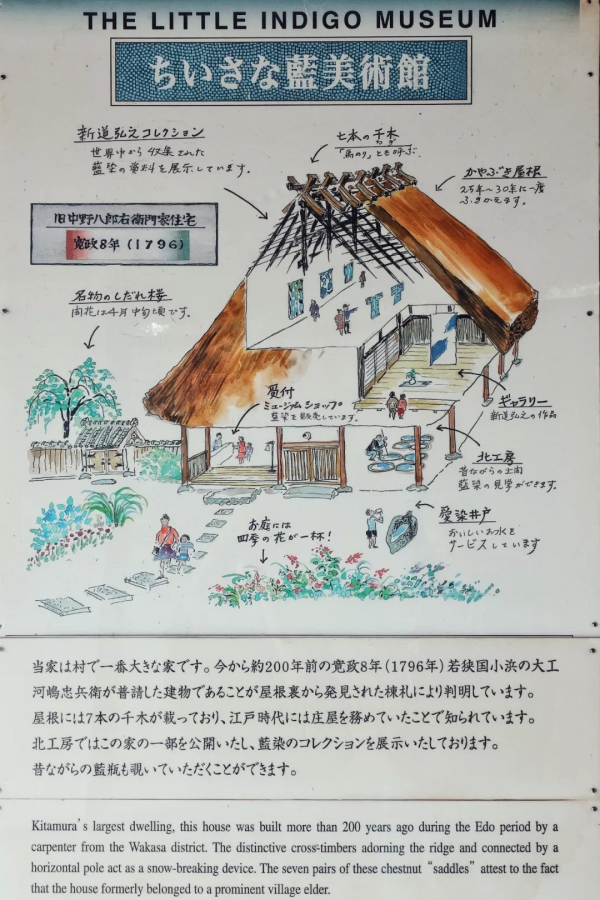 THE LITTLE INDIGO MUSEUM
ちいさな藍美術館
新道弘之コレクション
世界中から収集された
藍染の資料を展示しています。
七本の千木
ちぎ
「馬のり」とも呼ぶ
かやぶき屋根
25年〜30年に一度
ふきかえます。
旧中野八郎右衛門家住宅
寛政8年(1796)
名物のしだれ桜
開花は4月中旬頃です。
受付
ミュージアムショップ
藍染を販売しています。
ギャラリー
新道弘之の作品
北工房
昔ながらの土間
藍染の見学ができます。
お庭には
四季の花が一杯!
愛染井戸
おいしいお水を
サービスしています
当家は村で一番大きな家です。今から約200年前の寛政8年(1796年)若狭国小浜の大工
河嶋忠兵衛が普請した建物であることが屋根裏から発見された棟札により判明しています。
屋根には7本の千木が載っており、江戸時代には庄屋を務めていたことで知られています。
北工房ではこの家の一部を公開いたし、藍染のコレクションを展示いたしております。
昔ながらの藍瓶も覗いていただくことができます。
Kitamura's largest dwelling, this house was built more than 200 years ago during the Edo period by a
carpenter from the Wakasa district. The distinctive cross-timbers adorning the ridge and connected by a
horizontal pole act as a snow-breaking device. The seven pairs of these chestnut “saddles” attest to the fact
that the house formerly belonged to a prominent village elder.